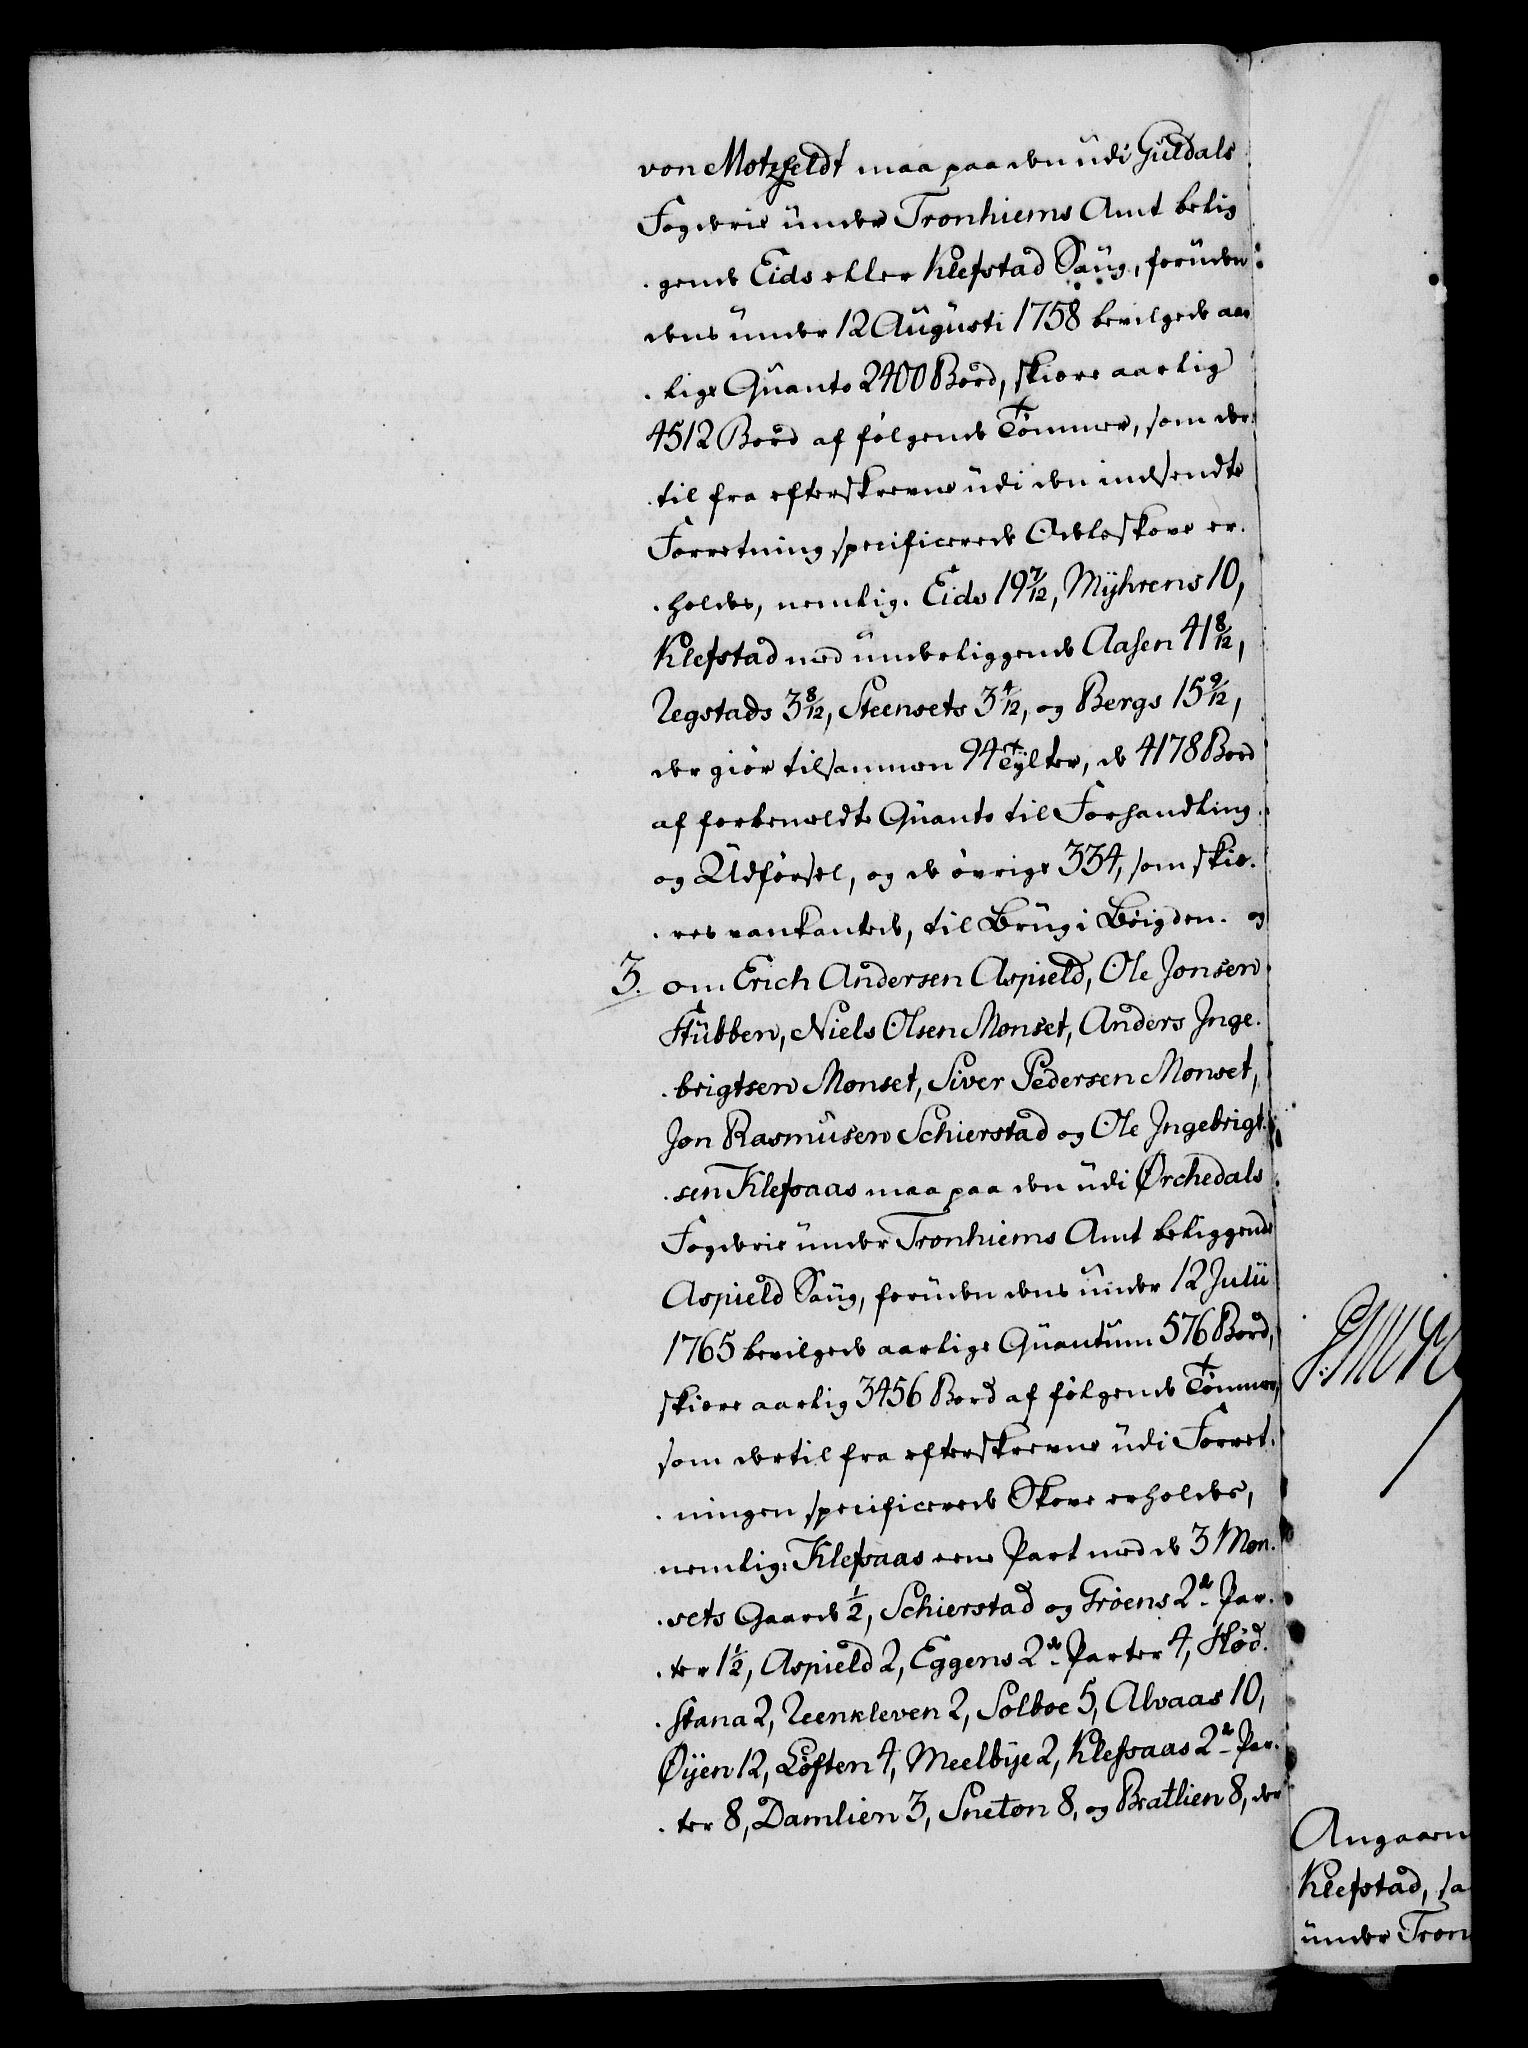 von Motzfeldt maa paa den udi Guldals
Fogderie under Tronhiems Amt belig
gende Eids eller Klefstad Saug, foruden
dens under 12 Augusti 1758 bevilgede aar
lige Quanto 2400 Bord, skiære aarlig
4512 Bord af følgende Tømmer, som der
til fra efterskrevne udi den indsendte
Forretning specificerede Odelsskove er
holdes, nemlig: Eids 19 7/12, Myhrens 10,
Klefstad med underliggende Aasen 41 8/12,
Regstads 3 8/12, Steensets 3 4/12, og Bergs 15 9/12,
der giør tilsammen 94 Tylter, de 4178 Bord
af forbemeldte Quanto til Forhandling
og Udførsel, og de øvrige 334, som skiæ
res vankantede, til Brug i Bøigden. og
3. om Erich Andersen Aspield, Ole Jonsen
Stubben, Niels Olsen Monset, Anders Inge
brigtsen Monset, Siver Pedersen Monset,
Jon Rasmusen Schierstad og Ole Ingebrigt
sen Klefsaas maa paa den udi Ørchedals
Fogderie under Tronhiems Amt beliggende
Aspield Saug, foruden dens under 12 Julii
1765 bevilgede aarlige Quantum 576 Bord,
skiære aarlig 3456 Bord af følgende Tømmer,
som dertil fra efterskrevne udi Forret
ningen specificerede Skove erholdes,
nemlig: Klefsaas eene Part med de 3 Mon
sets Gaarde 1/2, Schierstad og Grøens 2de Par
ter 1 1/2, Aspield 2, Eggens 2de Parter 4, Stød
stana 2, Reenkleven 2, Solboe 5, Alvaas 10,
Øyen 12, Løften 4, Meelbye 2, Klefsaas 2de Par
ter 8, Damlien 3, Sneton 8, og Bratlien 8, der
Angaaen
Klefstad, sa
under Tron